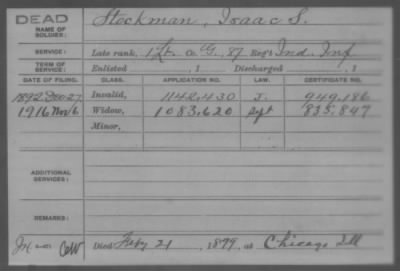 DEAD
NAME OF SOLDIER: Stockman, Isaac S.
SERVICE: Late rank, 1 Lt. Co. G, 87 Reg't Ind. Inf.
TERM OF SERVICE: Enlisted , 1 Discharged , 1
DATE OF FILING. CLASS. APPLICATION NO. LAW. CERTIFICATE NO.
1892 Dec 27 Invalid, 1142.430 J. 949.186
1916 Nov 6 Widow, 1083.620 Sept 835.847
Minor,
ADDITIONAL SERVICES:
REMARKS:
Died Feby 21, 1899, at Chicago Ill